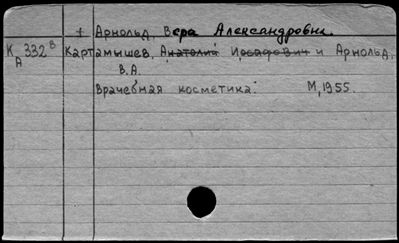 † Арнольд, Вера Александровна.
К 332 в Картамышев, Анатолий Иосафович и Арнольд,
А В.А.
Врачебная косметика: М, 1955.